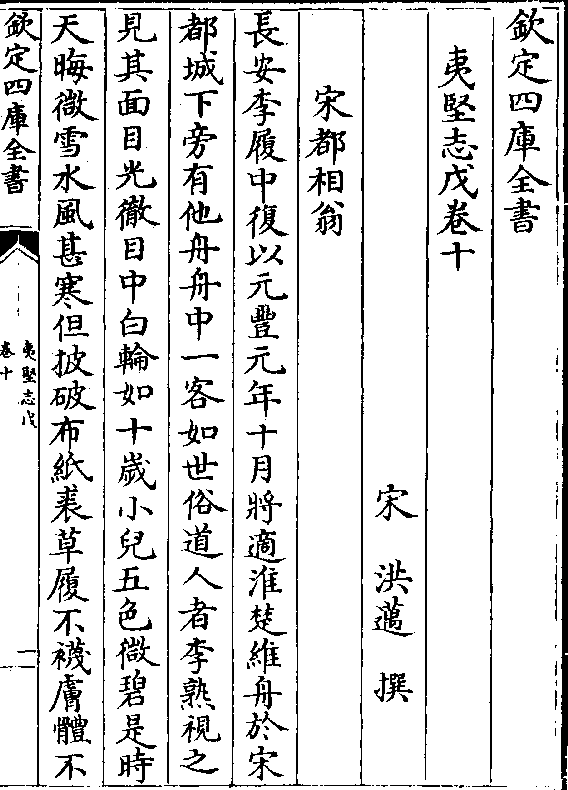 欽定四庫全書
夷堅志戊卷十
宋 洪邁 撰
宋都相翁
長安李履中復以元豐元年十月將適淮楚維舟於宋
都城下旁有他舟舟中一客如世俗道人者李熟視之
見其面目光徹目中白輪如十歲小兒五色微碧是時
天晦微雪水風甚寒但披破布紙裘草履不襪膚體不
欽定四庫全書
夷堅志戊
卷十
一